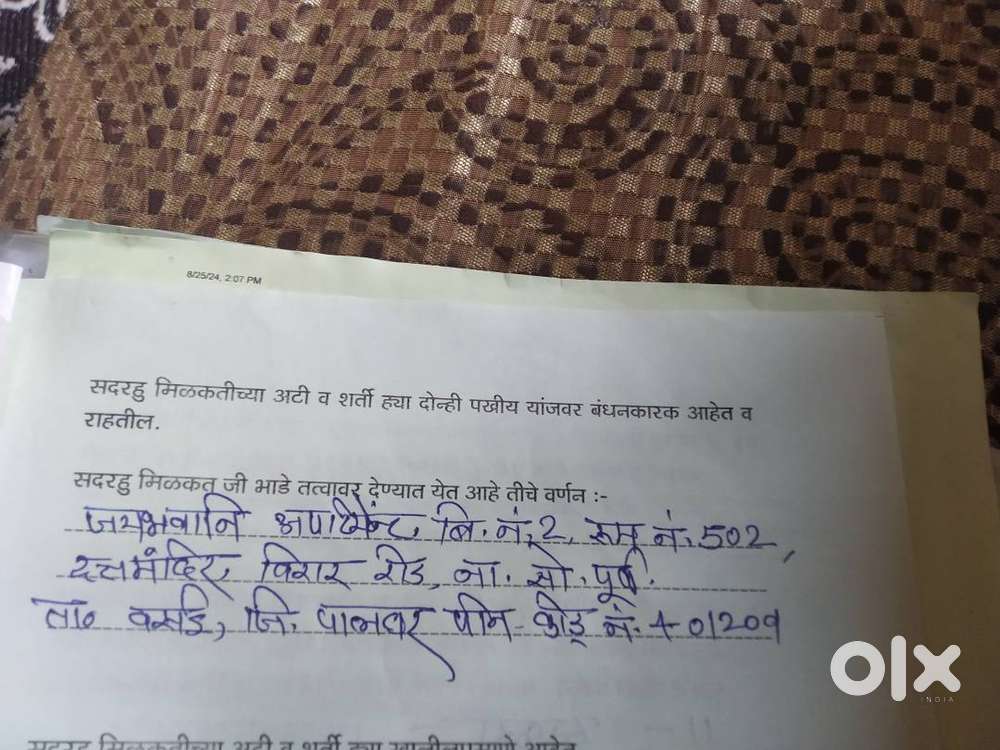 8/25/24, 2:07 PM
सदरहु मिळकतीच्या अटी व शर्ती ह्या दोन्ही पखीय यांजवर बंधनकारक आहेत व
राहतील.
सदरहु मिळकत जी भाडे तत्वावर देण्यात येत आहे तीचे वर्णन :-
जयभवानि अपार्टमेंन्ट, बि. नं. 2, रूम नं. 502,
दत्तमंदिर, विरार रोड, ना. सो. पूर्व.
ता० वसई, जि. पालघर पीन-कोड नं. 401209
सदरहु मिळकतीच्या अटी व शर्ती ह्या खालीलप्रमाणे आहेत
olx
INDIA